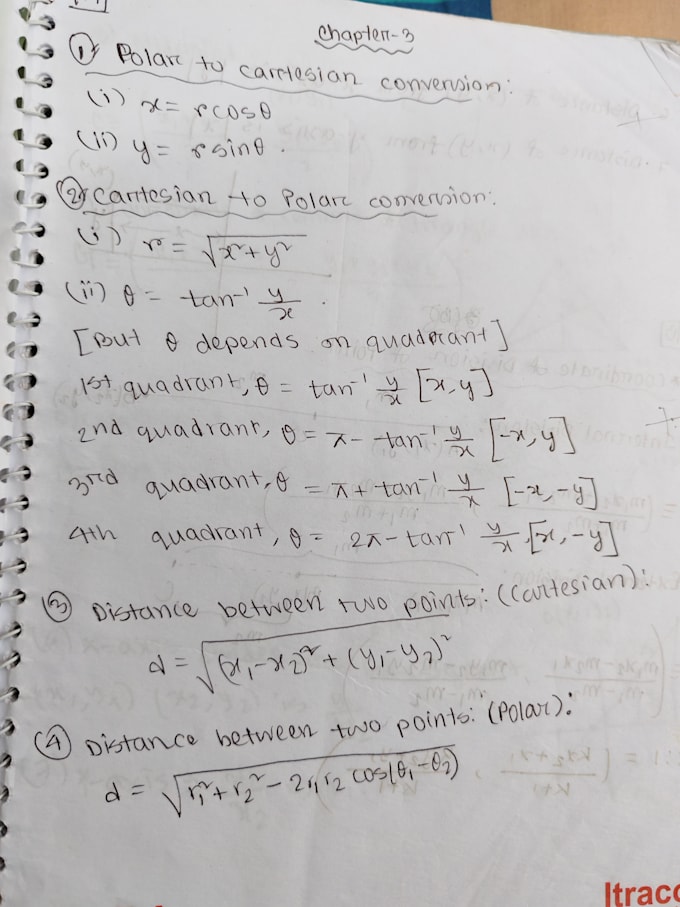 Chapter-3
① Polar to cartesian conversion:
(i) x = r cosθ
(ii) y = r sinθ .
② Cartesian to Polar conversion:
(i) r = √x²+y²
(ii) θ = tan⁻¹ y/x .
[But θ depends on quadrant]
1st quadrant, θ = tan⁻¹ y/x [x,y]
2nd quadrant, θ = π - tan⁻¹ y/x [-x, y]
3rd quadrant, θ = π + tan⁻¹ y/x [-x, -y]
4th quadrant, θ = 2π - tan⁻¹ y/x [x, -y]
③ Distance between two points: (Cartesian):
d = √(x₁-x₂)² + (y₁-y₂)²
④ Distance between two points: (Polar):
d = √r₁² + r₂² - 2r₁r₂ cos(θ₁-θ₂)
Itrac